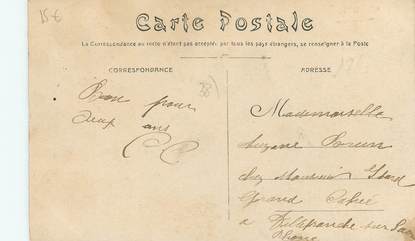 15€
Carte Postale
La Correspondance au recto n'étant pas acceptée par tous les pays étrangers, se renseigner à la Poste
CORRESPONDANCE
ADRESSE
Bon pour
deux ans
Mademoiselle
Suzane Brun
chez Monsieur
Grand Café
a Villefranche sur Saone
Rhone